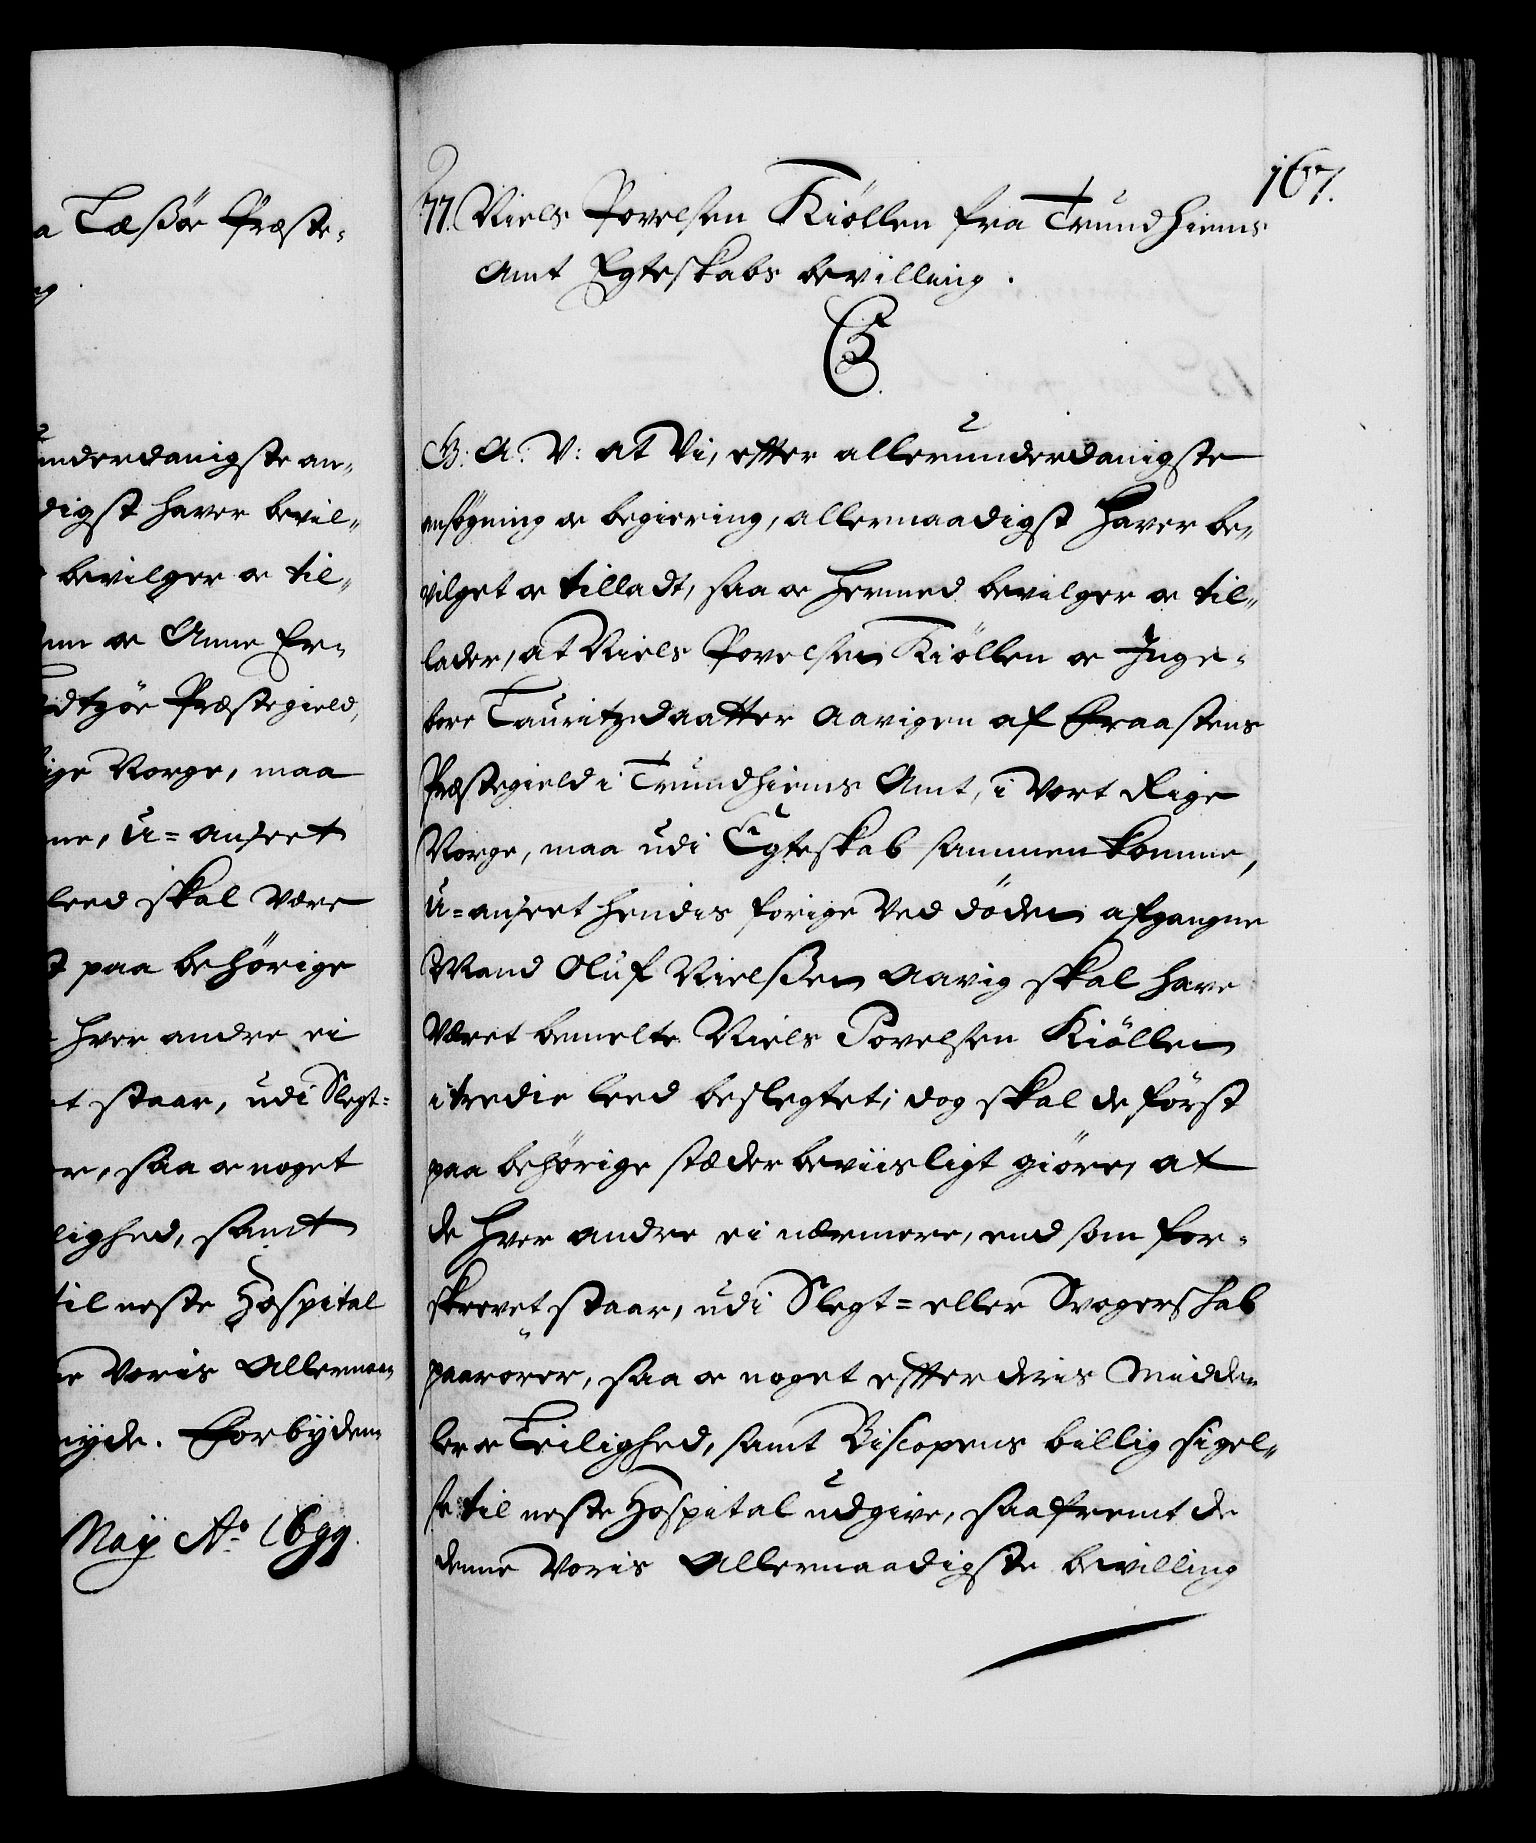 a Læssøe Præste-
ng
underdanigste an-
digst hafver bevil-
bevilger oc til-
oc Anne Er-
Præstegield,
ige Norge, maa
ne, u-anseet
leed skal være
paa behørige
hver andre ei
et staar, udi Slegt-
er, saa oc noget
lighed, samt
til neste Hospital
Voris Allernaa-
nyde. Forbydend
Maÿ Ao 1699.
167.
77. Niels Povelsen Kiöllen fra Trundhiems
Amt Egteskabs bevilling.
C5.
G: A: V: at Vi, efter allerunderdanigste
ansögning oc begiering, allernaadigst hafver be-
vilget oc tilladt, saa oc hermed bevilger oc til-
lader, at Niels Povelsen Kiöllen oc Inge-
borr Lauritzdaatter Aavigen af Eraastens
Præstegield i Trundhiems Amt, i vort Rige
Norge, maa udi Egteskab sammenkomme,
u-anseet hendis forige ved döden afgangne
Mand Oluf Nielssen Aavig skal hafve
været bemelte Niels Povelsen Kiöllen
i tredie leed beslegtet; dog skal de först
paa behörige stæder beviisligt giöre, at
de hver andre ei nærmere, end som for-
skrevet staar, udi Slegt- eller Svogerskab
paarörer, saa oc noget efter deris Midde-
ler oc Leilighed, samt Biscopens billig sigel-
se til neste Hospital udgive, saafremt de
denne Voris Allernaadigste bevilling